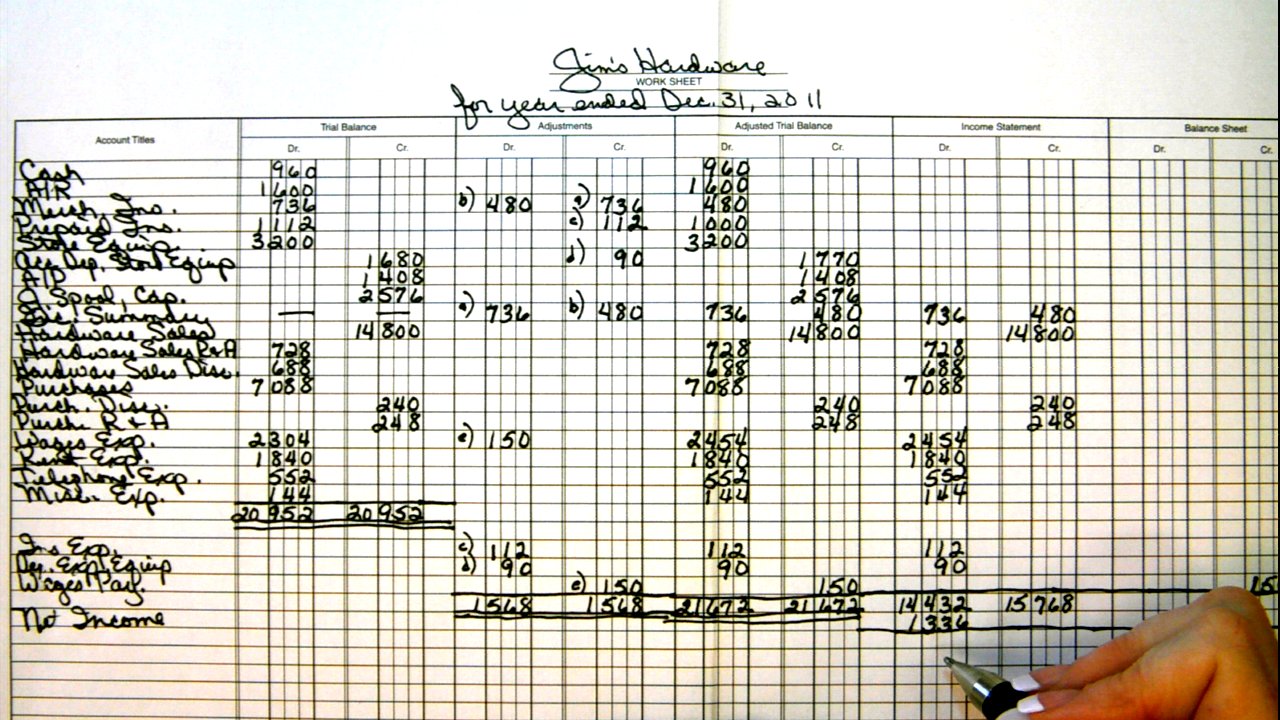 Jim's Hardware
WORK SHEET
for year ended Dec. 31, 2011
Account Titles Trial Balance Adjustments Adjusted Trial Balance Income Statement Balance Sheet
Dr. Cr. Dr. Cr. Dr. Cr. Dr. Cr. Dr. Cr.
Cash 960 960
A/R 1600 1600
Merch. Inv. 736 b) 480 a) 736 480
Prepaid Ins. 1112 c) 112 1000
Store Equip. 3200 3200
Acc. Dep. Store Equip 1680 d) 90 1770
A/P 1408 1408
J. Spool, Cap. 2576 2576
Inc. Summary — — a) 736 b) 480 736 480 736 480
Hardware Sales 14800 14800 14800
Hardware Sales R&A 728 728 728
Hardware Sales Disc. 688 688 688
Purchases 7088 7088 7088
Purch. Disc. 240 240 240
Purch. R&A 248 248 248
Wages Exp. 2304 e) 150 2454 2454
Rent Exp. 1840 1840 1840
Telephone Exp. 552 552 552
Misc. Exp. 144 144 144
20952 20952
Ins Exp. c) 112 112 112
Dep. Exp. Equip d) 90 90 90
Wages Pay. e) 150 150 15
1568 1568 21672 21672 14432 15768
Net Income 1336